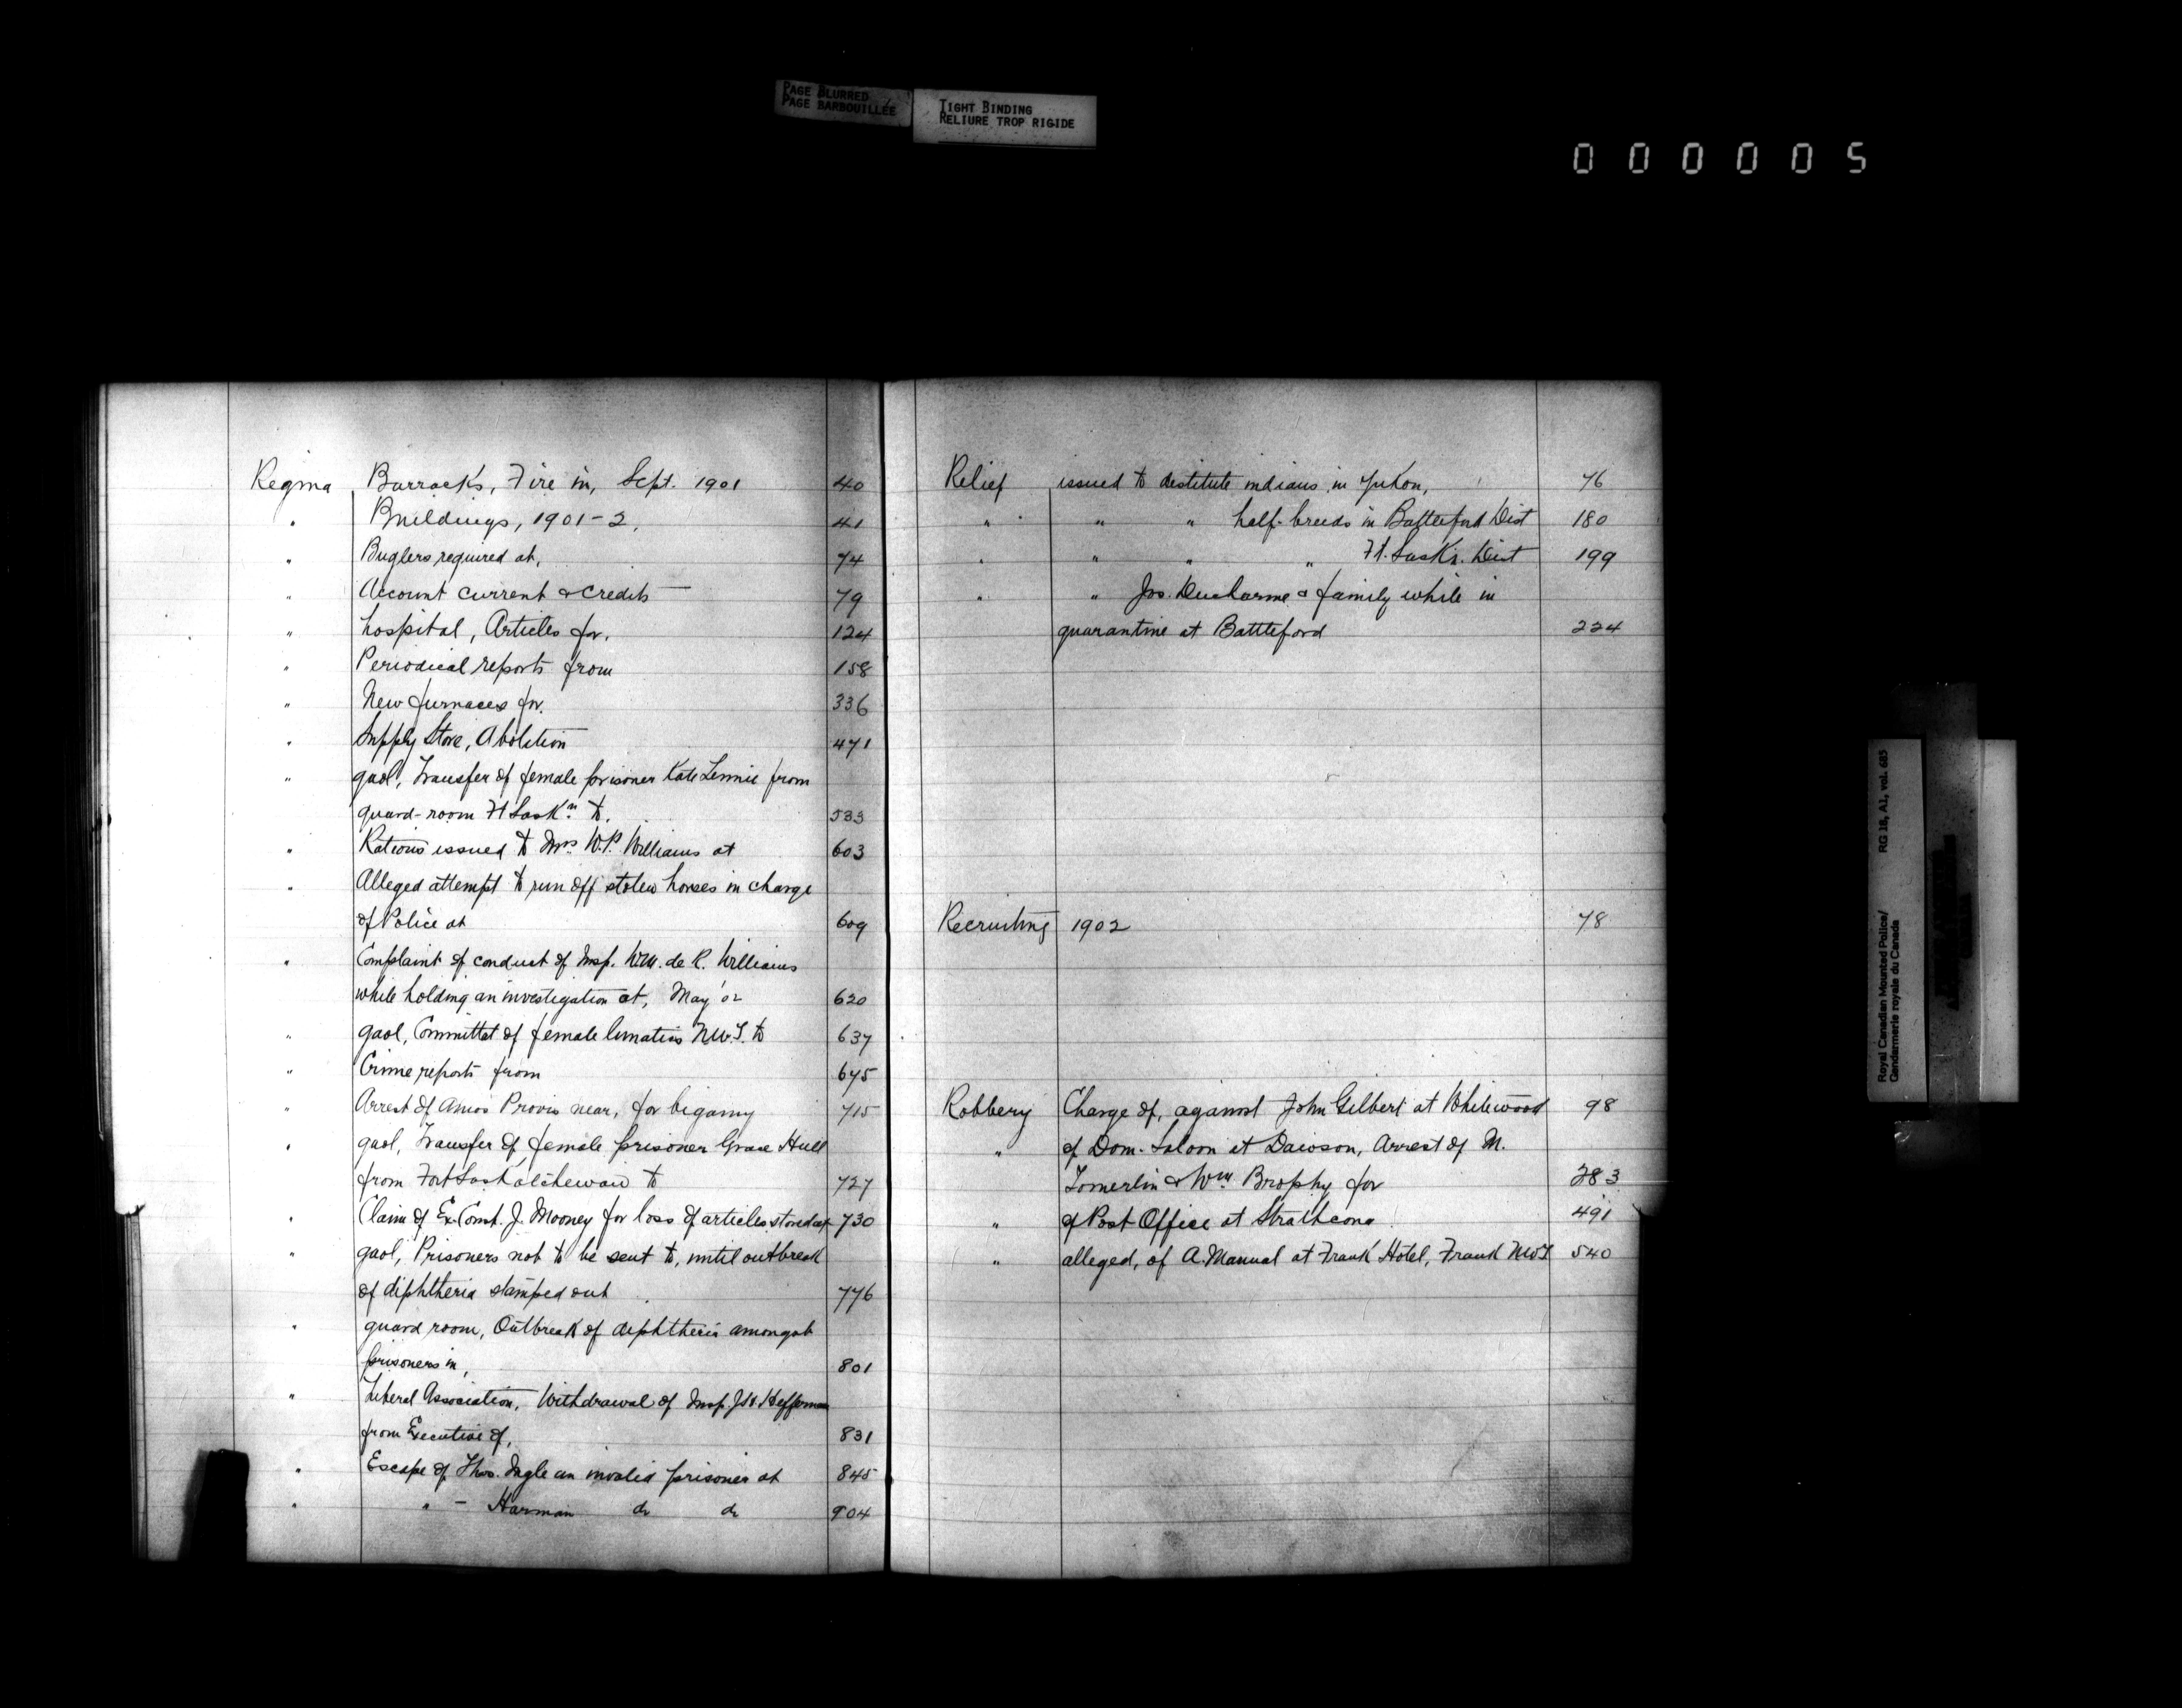 PAGE BLURRED
PAGE BARBOUILLÉE
TIGHT BINDING
RELIURE TROP RIGIDE
000005
Regina Barracks, Fire in, Sept. 1901 40
" Buildings, 1901-2, 41
" Buglers required at, 74
" Account current & credits — 79
" hospital, Articles for, 124
" Periodical reports from 158
" New furnaces for. 336
" Supply Store, Abolition 471
" gaol, Transfer of female prisoner Kate Lennie from
guard-room Ft Saskn to. 533
" Rations issued to Mrs W.P. Williams at 603
" Alleged attempt to run off stolen horses in charge
of Police at 609
" Complaint of conduct of Insp. W.M. de R. Williams
while holding an investigation at, May '02 620
" gaol, Committal of female lunatics N.W.T. to 637
" Crime reports from 675
" Arrest of Amos Provis near, for bigamy 715
" gaol, Transfer of female prisoner Grace Hull
from Fort Saskatchewan to 727
" Claim of Ex-Const. J. Mooney for loss of articles stored at 730
" gaol, Prisoners not to be sent to, until outbreak
of diphtheria stamped out 776
" guard room, Outbreak of diphtheria amongst
prisoners in, 801
" Liberal Association, Withdrawal of Insp. Heffernan
from Executive of, 831
" Escape of Thos. Ingle an invalid prisoner at 845
" " — Harman do do 904
Relief issued to destitute indians in Yukon, 76
" " " half-breeds in Battleford Dist 180
" " " " Ft. Saskn. Dist 199
" " Jos. Ducharme & family while in
quarantine at Battleford 224
Recruiting 1902 78
Robbery Charge of, against John Gilbert at Whitewood 98
" of Dom. Saloon at Dawson, Arrest of M.
Tomerlin & Wm Brophy for 283
" of Post Office at Strathcona 491
" alleged, of A. Manual at Frank Hotel, Frank NWT 540
Royal Canadian Mounted Police/
Gendarmerie royale du Canada
RG 18, A1, vol. 685